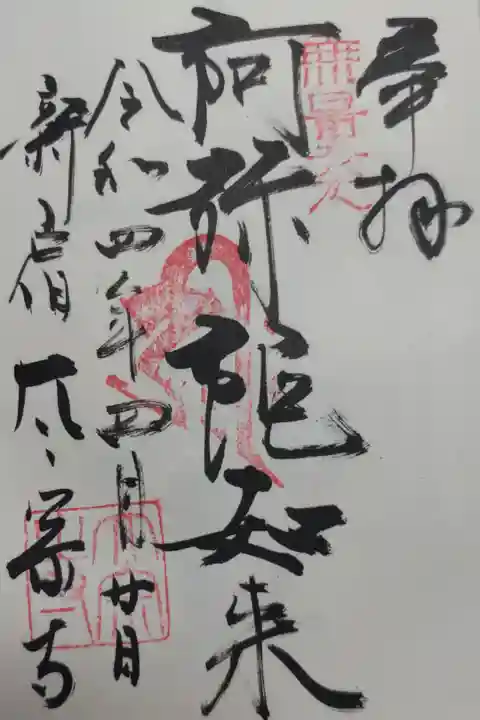 奉拝
無量寿
阿弥陀如来
令和四年四月廿日
新宿 太宗寺